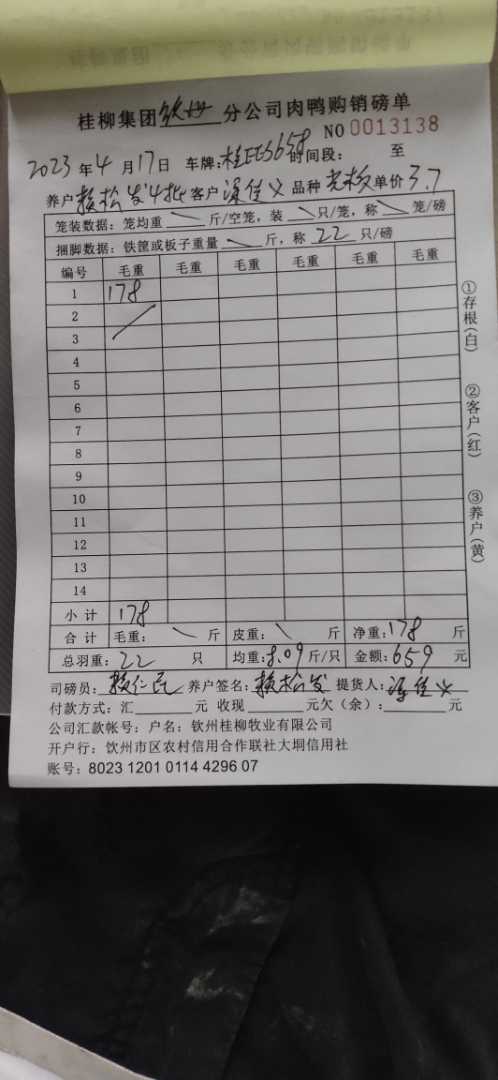 桂柳集团钦州分公司肉鸭购销磅单
NO 0013138
2023年4月17日 车牌: 时间段: 至
养户赖松发4批 客户 品种 单价3.7
笼装数据: 笼均重 \ 斤/空笼, 装 \ 只/笼, 称 \ 笼/磅
捆脚数据: 铁筐或板子重量 \ 斤, 称 22 只/磅
编号 毛重 毛重 毛重 毛重 毛重 毛重
1 178
2
3
4
5
6
7
8
9
10
11
12
13
14
小计 178
合计 毛重: \ 斤 皮重: \ 斤 净重: 178 斤
总羽重: 22 只 均重: 8.09 斤/只 金额: 659 元
司磅员: 养户签名: 赖松发 提货人:
付款方式: 汇 元 收现 元欠(余): 元
公司汇款帐号: 户名: 钦州桂柳牧业有限公司
开户行: 钦州市区农村信用合作联社大垌信用社
账号: 8023 1201 0114 4296 07
①存根(白)
②客户(红)
③养户(黄)